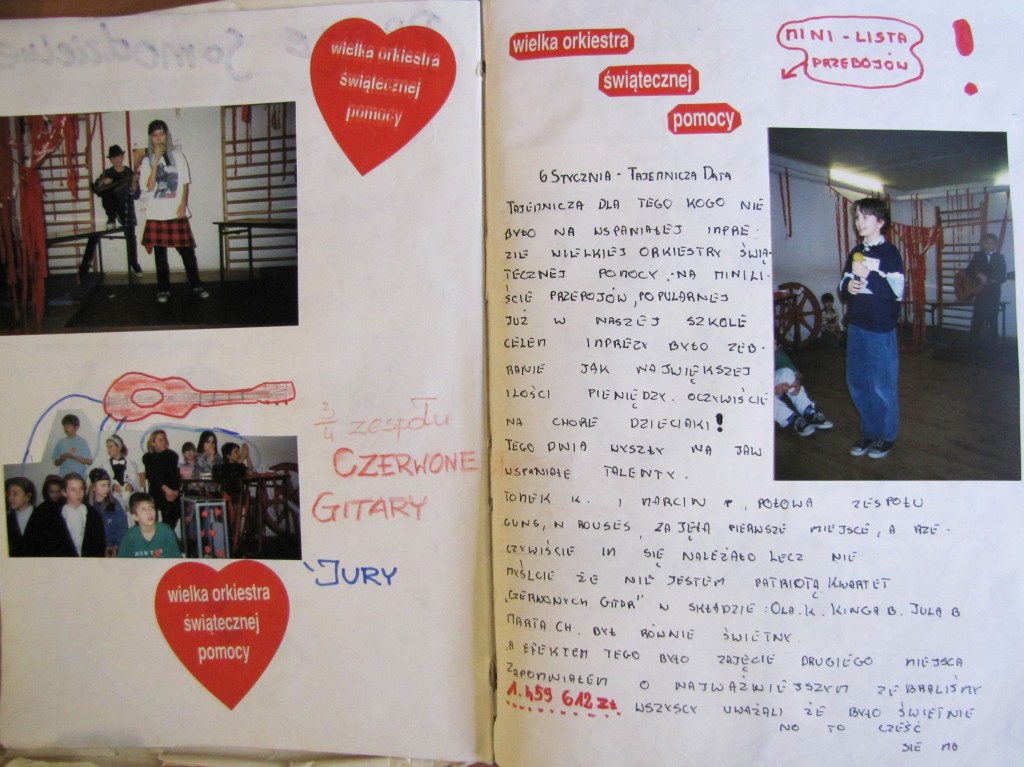 wielka orkiestra
świątecznej
pomocy
3/4 zespołu
CZERWONE
GITARY
JURY
wielka orkiestra
świątecznej
pomocy
wielka orkiestra
świątecznej
pomocy
MINI - LISTA
PRZEBOJÓW
!
6 STYCZNIA - TAJEMNICZA DATA
TAJEMNICZA DLA TEGO KOGO NIE
BYŁO NA WSPANIAŁEJ INPRE-
ZIE WIELKIEJ ORKIESTRY ŚWIĄ-
TECZNEJ POMOCY - NA MINILI-
ŚCIE PRZEPOJÓW, POPULARNEJ
JUŻ W NASZEJ SZKOLE
CELEM INPREZY BYŁO ZEB-
RANIE JAK NAJWIĘKSZEJ
ILOŚCI PIENIĘDZY. OCZYWIŚCIE
NA CHORE DZIECIAKI!
TEGO DNIA WYSZŁY NA JAW
WSPANIAŁE TALENTY.
TOMEK K. I MARCIN P, POŁOWA ZESPOŁU
GUNS, N ROUSES, ZAJĘŁA PIERWSZE MIEJSCE, A RZE-
CZYWIŚCIE IM SIĘ NALEŻAŁO LECZ NIE
MYŚLCIE ŻE NIE JESTEM PATRIOTĄ KWARTET
„CZERWONYCH GITAR" W SKŁADZIE: OLA.K. KINGA B. JULA B
MARTA CH. BYŁ RÓWNIE ŚWIETNY.
A EFEKTEM TEGO BYŁO ZAJĘCIE DRUGIEGO MIEJSCA
ZAPOMNIAŁEM O NAJWAŻNIEJSZYM ZEBRALIŚMY
1.459 612 ZŁ WSZYSCY UWAŻALI ŻE BYŁO ŚWIETNIE
NO TO CZEŚĆ